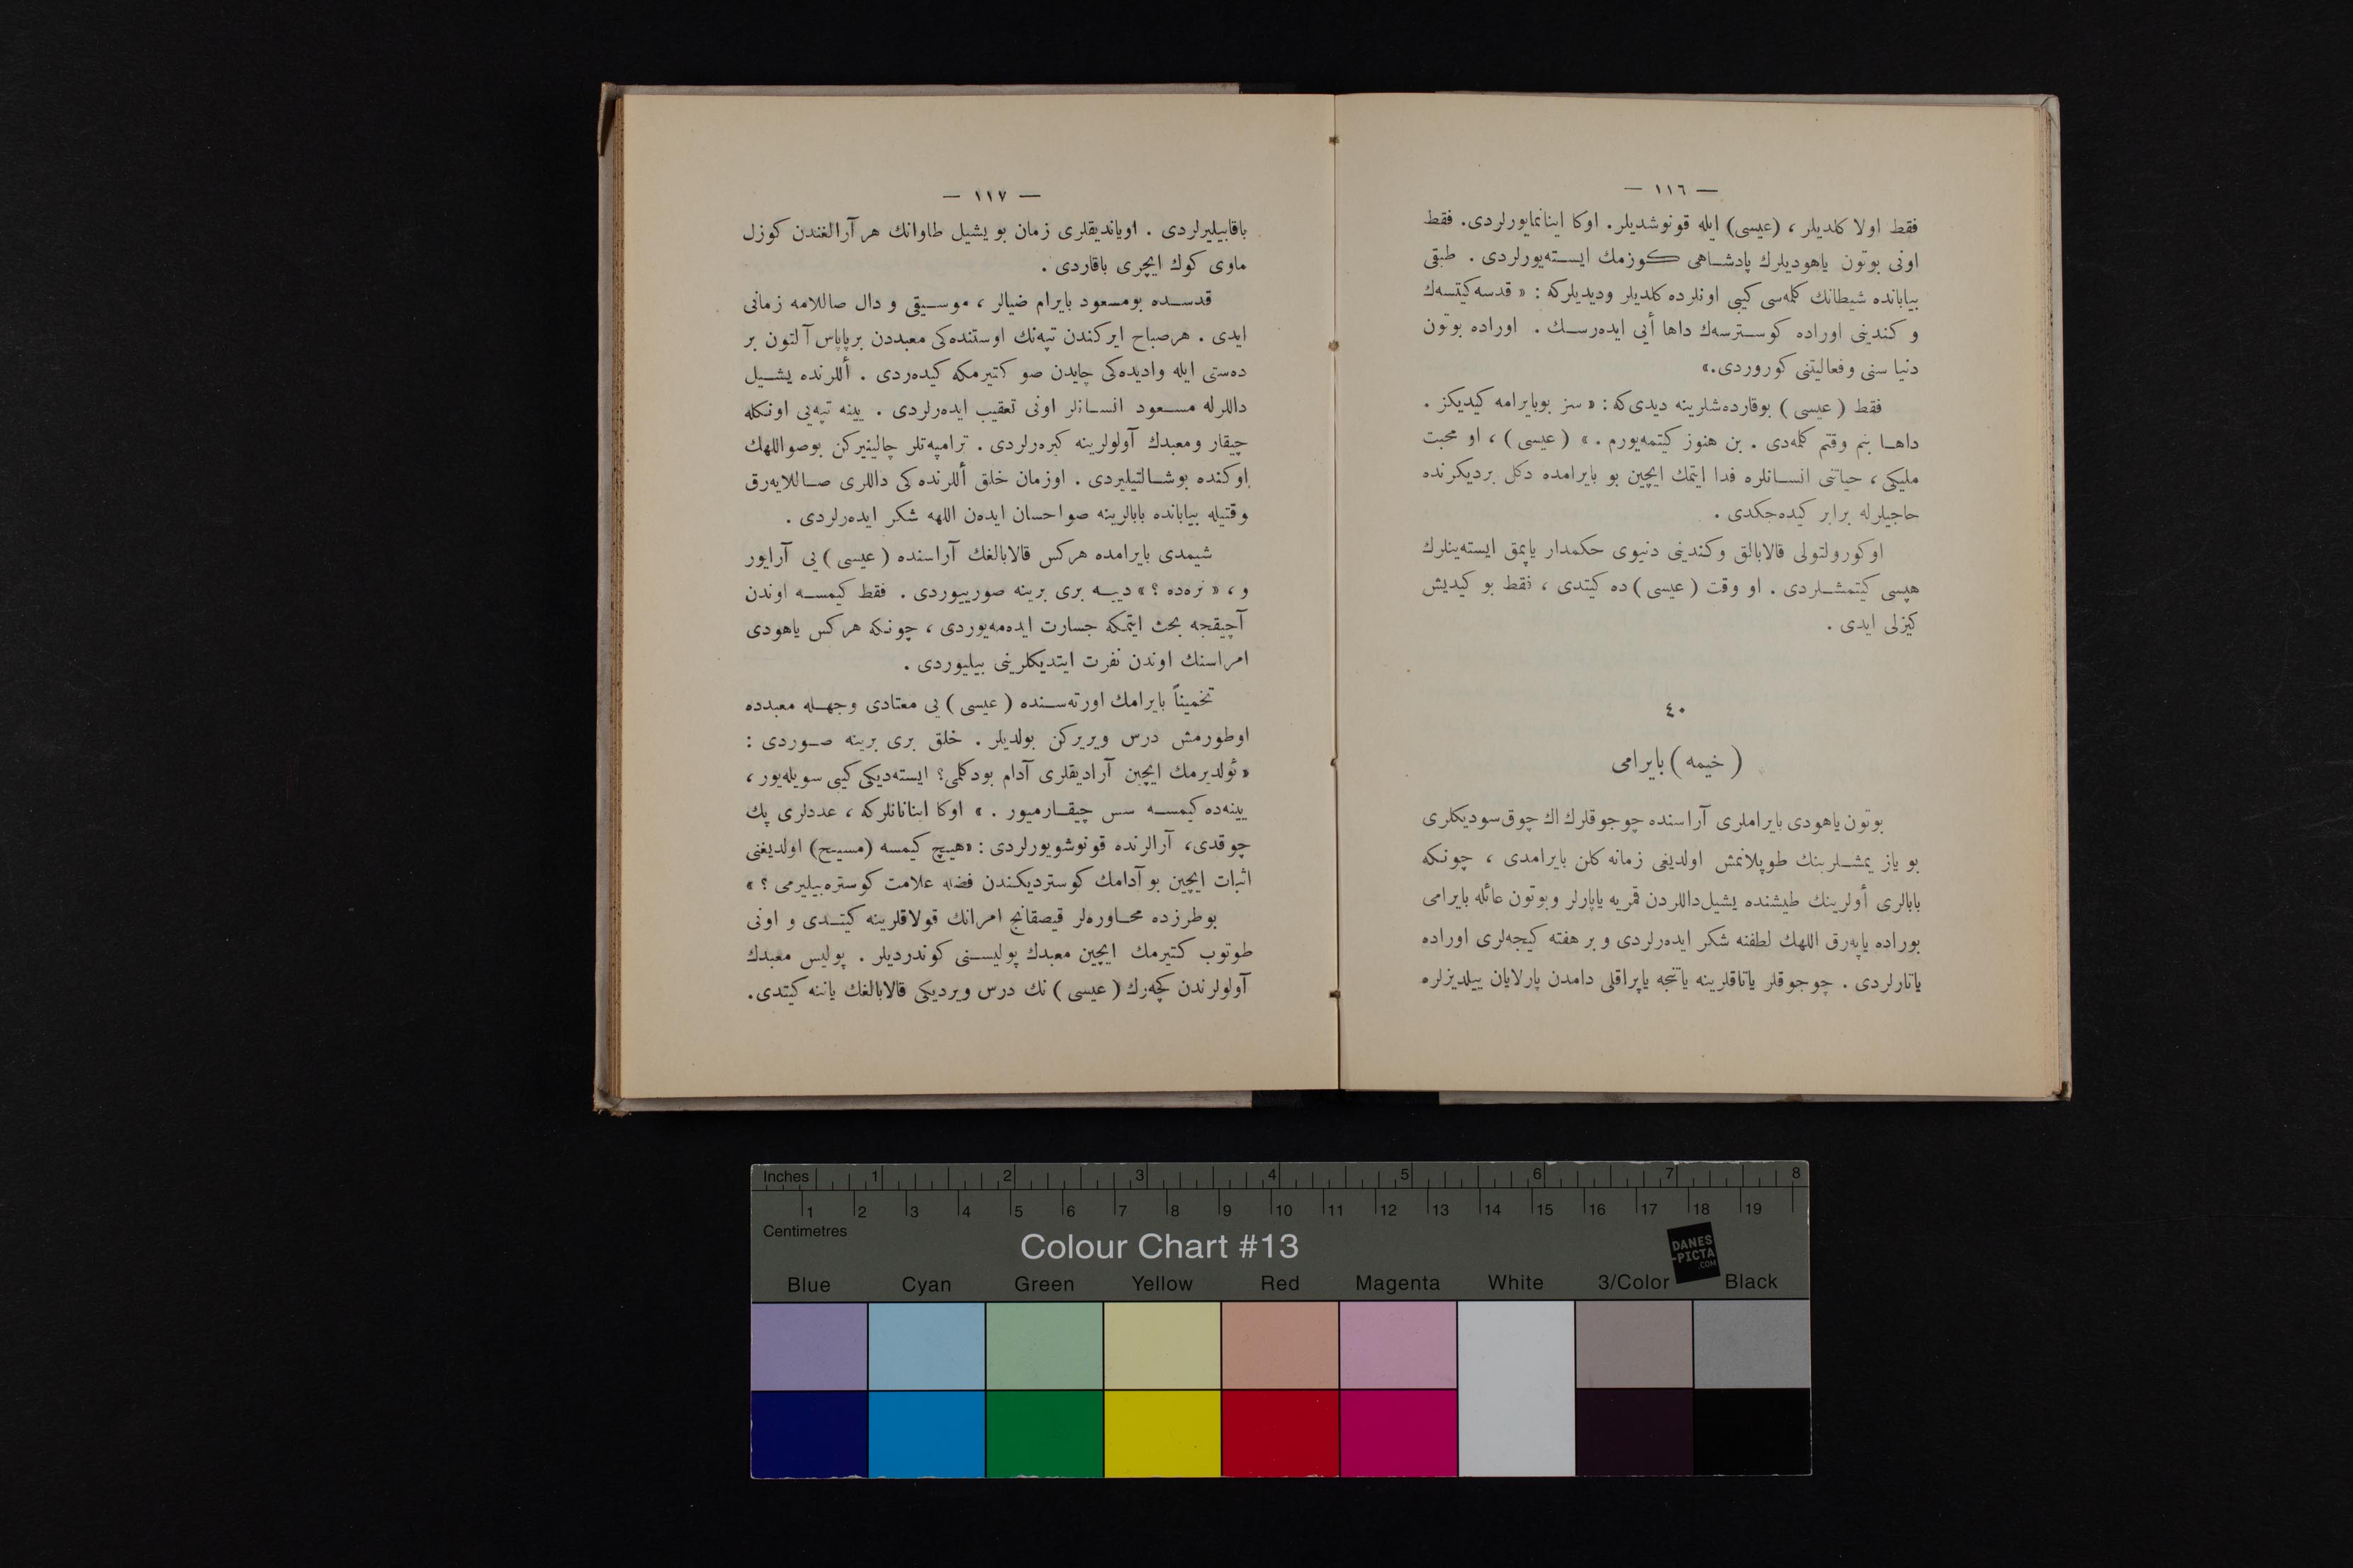 — ١١٦ —
فقط اولا كلديلر ، (عيسى) ايله قونوشديلر. اوكا اينانمايورلردى. فقط
اونى بوتون ياهوديلرك پادشاهى كوزمك ايسته‌يورلردى . طبقى
بياباندە شيطانك كلمه‌سى كيبى اونلرده كلديلر وديديلركه : « قدسه كيتسه‌ك
و كندينى اوراده كوسترسه‌ك داها أيى ايده‌رسك . اوراده بوتون
دنيا سنى وفعاليتنى كوروردى.»
فقط ( عيسى ) بوقارده‌شلرينه ديدى‌كه : « سز بوبايرامه كيديكز .
داها بنم وقتم كلمه‌دى . بن هنوز كيتمه‌يورم . » ( عيسى ) ، او محبت
مليكى ، حياتنى انسانلره فدا ايتمك ايچين بو بايرامده دكل برديكرنده
حاجيلرله برابر كيده‌جكدى .
اوكورولتولى قالابالق وكندينى دنيوى حكمدار ياپمق ايسته‌ينلرك
هپسى كيتمشلردى . او وقت ( عيسى ) ده كيتدى ، فقط بو كيديش
كيزلى ايدى .
٤٠
( خيمه ) بايرامى
بوتون ياهودى بايراملرى آراسنده چوجوقلرك اك چوق سوديكلرى
بو ياز يمشلرينك طوپلانمش اولديغى زمانه كلن بايرامدى ، چونكه
بابالرى أولرينك طيشنده يشيل داللردن قمريه ياپارلر وبوتون عائله بايرامى
بوراده ياپه‌رق اللهك لطفنه شكر ايده‌رلردى و بر هفته كيجه‌لرى اوراده
ياتارلردى . چوجوقلر ياتاقلرينه ياتنجه ياپراقلى دامدن پارلايان ييلديزلره
— ١١٧ —
باقابيليرلردى . اوياندیقلرى زمان بو يشيل طاوانك هر آرالغندن كوزل
ماوى كوك ايچرى باقاردى .
قدسده بومسعود بايرام ضيالر ، موسيقى و دال صاللامه زمانى
ايدى . هرصباح ايركندن تپه‌نك اوستنده‌كى معبددن برپاپاس آلتون بر
ده‌ستى ايله واديده‌كى چايدن صو كتيرمكه كيده‌ردى . أللرنده يشيل
داللرله مسعود انسانلر اونى تعقيب ايده‌رلردى . يينه تپه‌يى اونكله
چيقار ومعبدك آولولرينه كيره‌رلردى . ترامپه‌تلر چالينيركن بوصو اللهك
اوكنده بوشالتيليردى . اوزمان خلق أللرنده كى داللرى صاللايه‌رق
وقتيله بيابانده بابالرينه صو احسان ايده‌ن اللهه شكر ايده‌رلردى .
شيمدى بايرامده هركس قالابالغك آراسنده ( عيسى ) يى آرايور
و ، « نره‌ده ؟ » دييه برى برينه صورييوردى . فقط كيمسه اوندن
آچيقجه بحث ايتمكه جسارت ايده‌مه‌يوردى ، چونكه هركس ياهودى
امراسنك اوندن نفرت ايتديكلرينى بيليوردى .
تخميناً بايرامك اورته‌سنده ( عيسى ) يى معتادى وجهله معبدده
اوطورمش درس ويريركن بولديلر . خلق برى برينه صوردى :
« ئولديرمك ايچين آرادیقلرى آدام بودكلمى؟ ايسته‌ديكى كيبى سويله‌يور ،
يينه‌ده كيمسه سس چيقارميور . » اوكا اينانانلركه ، عددلرى پك
چوقدى، آرالرنده قونوشويورلردى : «هيچ كيمسه (مسيح) اولديغنى
اثبات ايچين بو آدامك كوستردیكندن فضله علامت كوستره‌بيليرمى ؟ »
بوطرزده محاوره‌لر قيصقانج امرانك قولاقلرينه كيتدى و اونى
طوتوب كتيرمك ايچين معبدك پوليسنى كوندرديلر . پوليس معبدك
آولولرندن كچه‌رك ( عيسى ) نك درس ويرديكى قالابالغك ياننه كيتدى.
Inches 1 2 3 4 5 6 7 8
1 2 3 4 5 6 7 8 9 10 11 12 13 14 15 16 17 18 19
Centimetres
Colour Chart #13
DANES
-PICTA
.COM
Blue Cyan Green Yellow Red Magenta White 3/Color Black